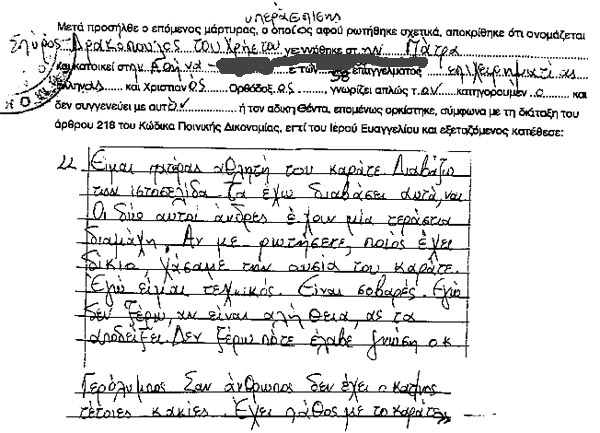 υπεράσπισης
Μετά προσήλθε ο επόμενος μάρτυρας, ο οποίος αφού ρωτήθηκε σχετικά, αποκρίθηκε ότι ονομάζεται
Σπύρος Δρακόπουλος του Χρήστου γεννήθηκε στ ην Πάτρα
και κατοικεί στην Αθήνα ετών 58 επαγγέλματος επιχειρηματίας
Έλληνας και Χριστιανός Ορθόδοξος γνωρίζει απλώς τον κατηγορούμενο και
δεν συγγενεύει με αυτόν ή τον αδικηθέντα, επομένως ορκίστηκε, σύμφωνα με τη διάταξη του
άρθρου 218 του Κώδικα Ποινικής Δικονομίας, επί του Ιερού Ευαγγελίου και εξεταζόμενος κατέθεσε:
Είμαι πατέρας αθλητή του καράτε. Διαβάζω
την ιστοσελίδα. Τα έχω διαβάσει αυτά, ναι
Οι δύο αυτοί άνδρες έχουν μία τεράστια
διαμάχη. Αν με ρωτήσετε, ποιός έχει
δίκιο, χάσαμε την ουσία του καράτε.
Εγώ είμαι τεχνικός. Είναι σοβαρές. Εγώ
δεν ξέρω, αν είναι αλήθεια, ας τα
αποδείξει. Δεν ξέρω πότε έλαβε γνώση ο κ
Γερόλυμπος Σαν άνθρωπος δεν έχει ο
τέτοιες κακίες. Έχει λάθος με το καράτε»